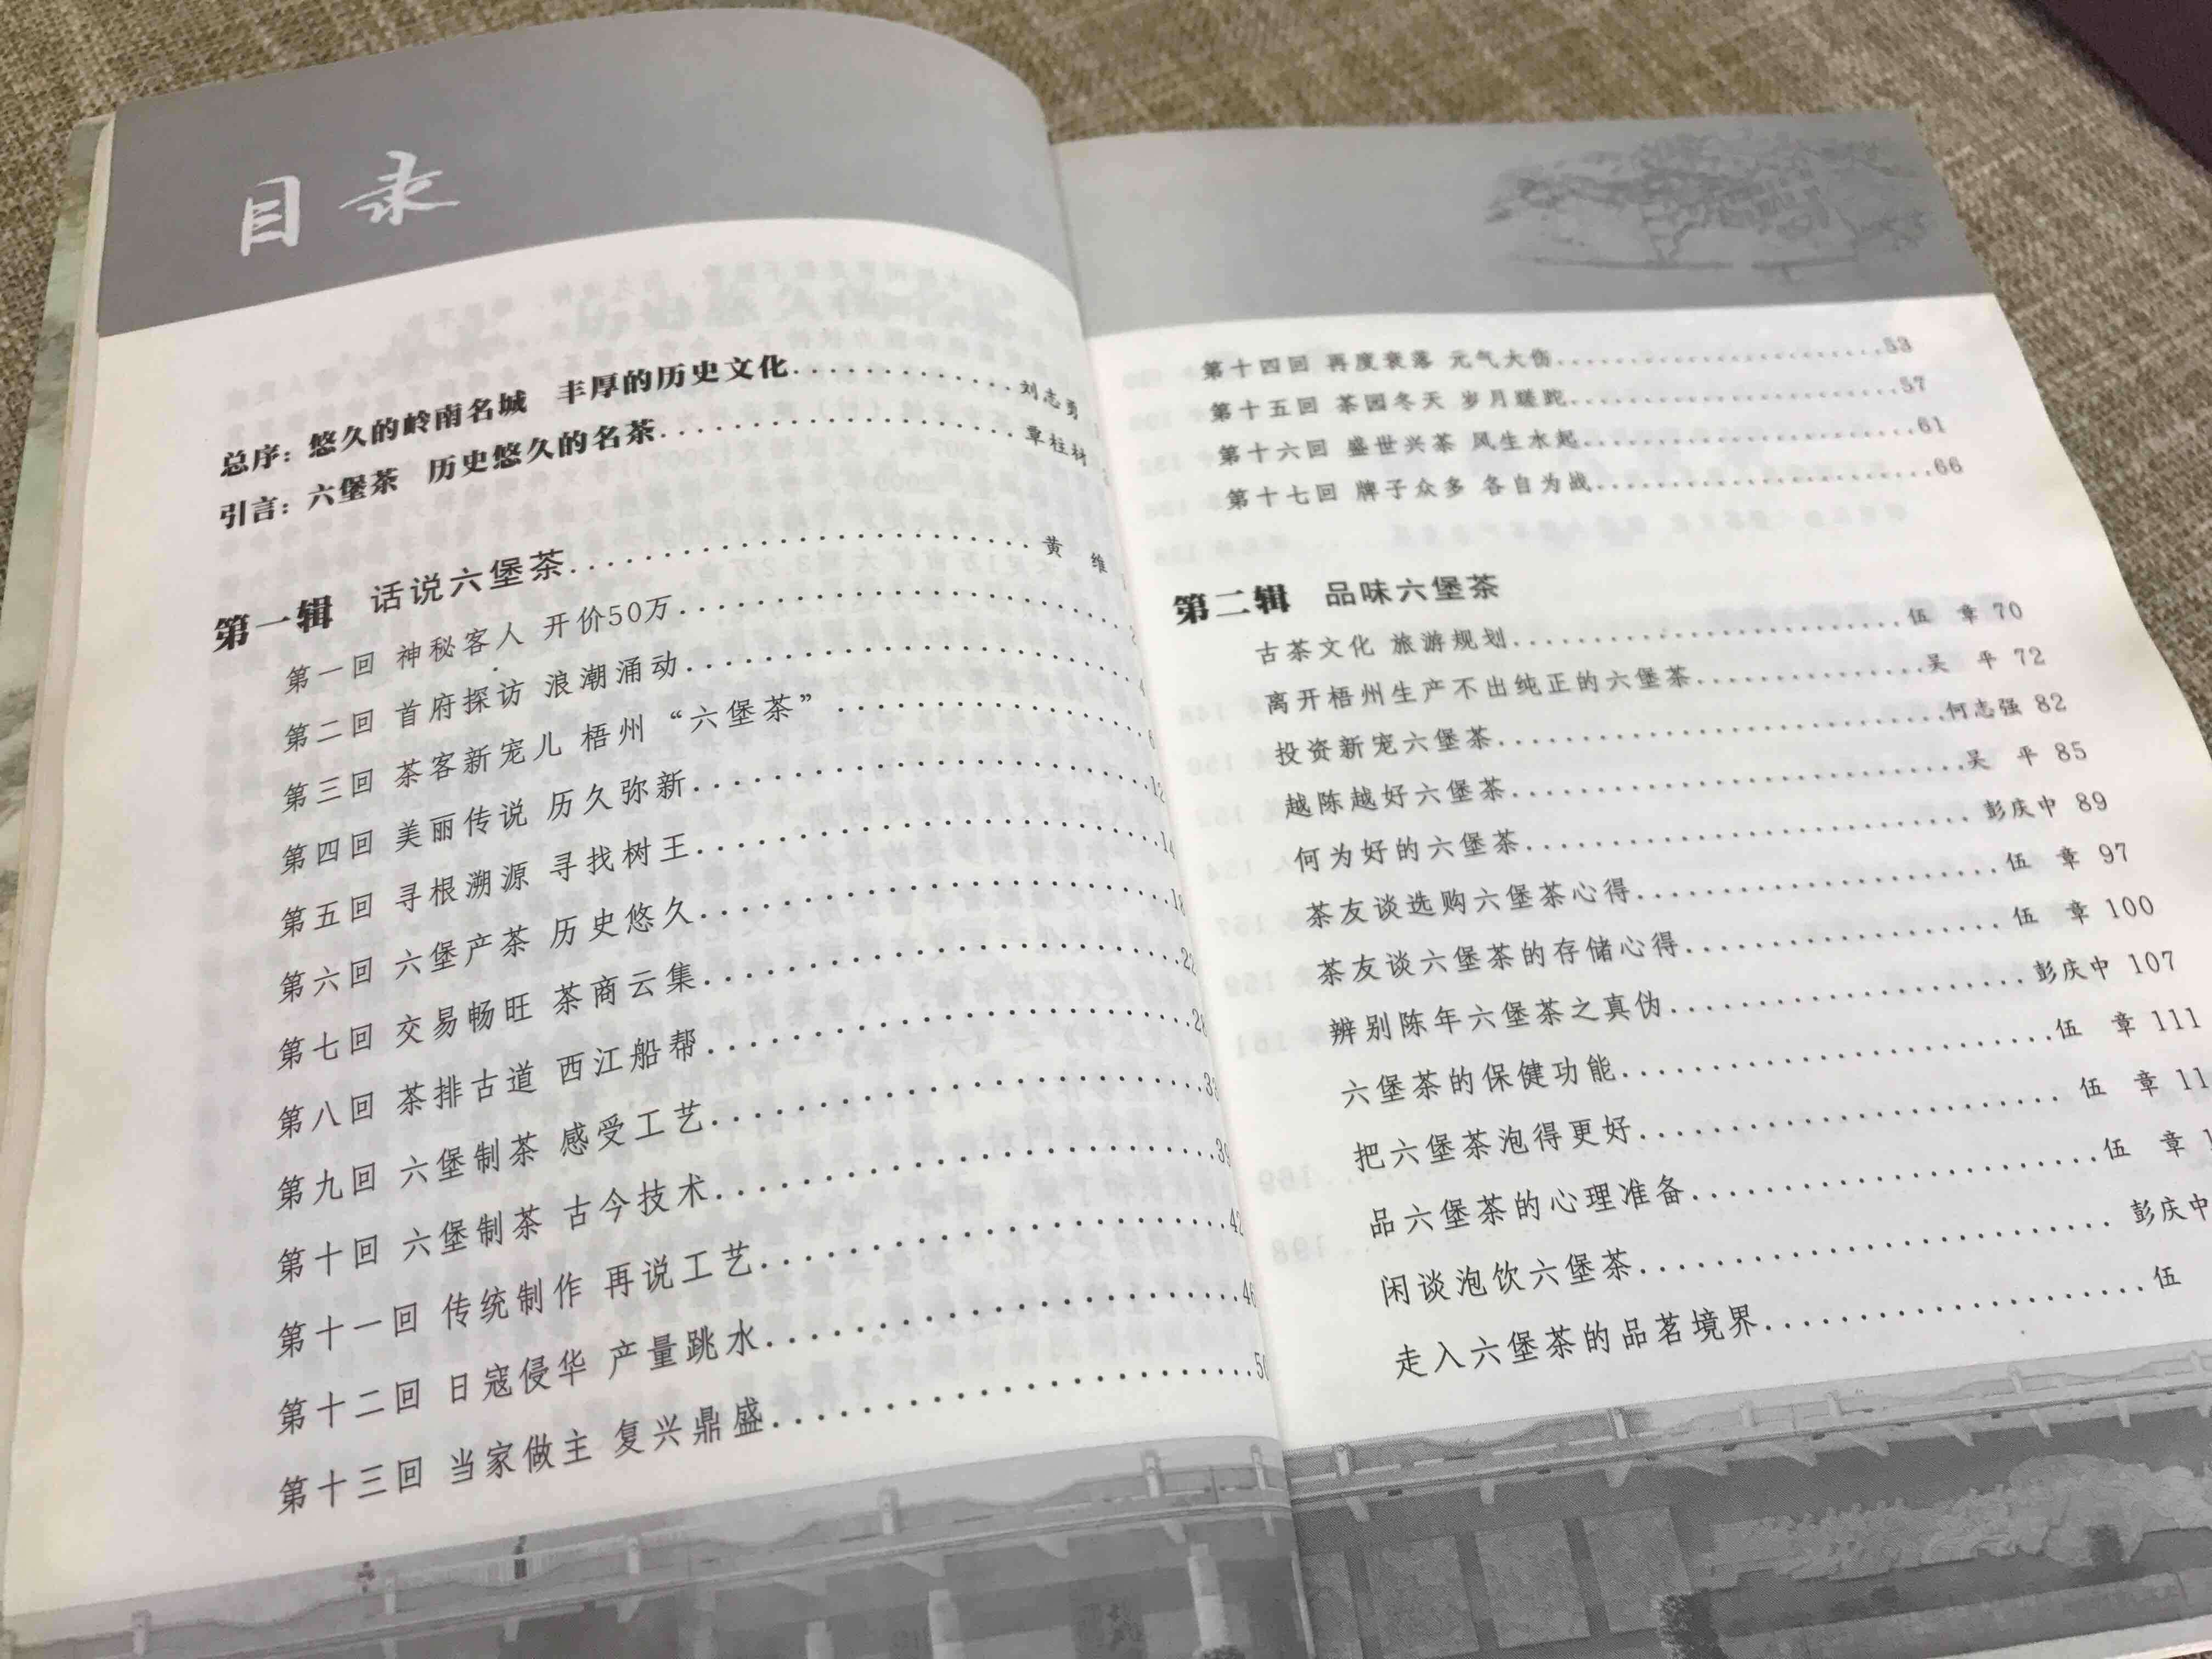 目录
总序：悠久的岭南名城 丰厚的历史文化..............刘志勇
引言：六堡茶 历史悠久的名茶........................覃柱材
第一辑 话说六堡茶..............................黄 维
第一回 神秘客人 开价50万..............................2
第二回 首府探访 浪潮涌动..............................4
第三回 茶客新宠儿 梧州“六堡茶”....................
第四回 美丽传说 历久弥新..............................12
第五回 寻根溯源 寻找树王..............................14
第六回 六堡产茶 历史悠久..............................18
第七回 交易畅旺 茶商云集..............................22
第八回 茶排古道 西江船帮..............................
第九回 六堡制茶 感受工艺..............................
第十回 六堡制茶 古今技术..............................
第十一回 传统制作 再说工艺..............................
第十二回 日寇侵华 产量跳水..............................46
第十三回 当家做主 复兴鼎盛..............................50
第十四回 再度衰落 元气大伤..............................53
第十五回 茶园冬天 岁月蹉跎..............................57
第十六回 盛世兴茶 风生水起..............................61
第十七回 牌子众多 各自为战..............................66
第二辑 品味六堡茶
古茶文化 旅游规划..............................伍 章 70
离开梧州生产不出纯正的六堡茶..................吴 平 72
投资新宠六堡茶..............................何志强 82
越陈越好六堡茶..............................吴 平 85
何为好的六堡茶..............................彭庆中 89
茶友谈选购六堡茶心得........................伍 章 97
茶友谈六堡茶的存储心得......................伍 章 100
辨别陈年六堡茶之真伪........................彭庆中 107
六堡茶的保健功能............................伍 章 111
把六堡茶泡得更好............................伍 章
品六堡茶的心理准备..........................伍 章
闲谈泡饮六堡茶..............................彭庆中
走入六堡茶的品茗境界........................伍